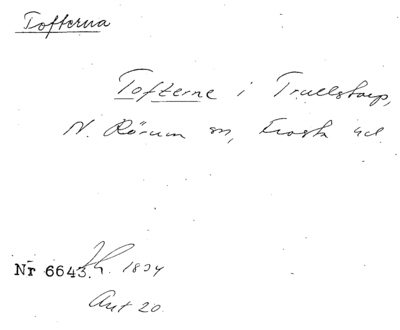 Tofterna
Tofterne i Trullstorp,
N. Rörum sn, Frosta hd.
Nr 6643. 1834
Ant 20.